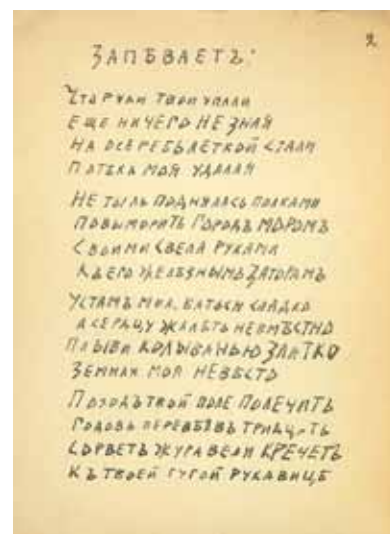 2
ЗАПѢВАЕТЪ:
Что руки твои упали
Еще ничего не зная
На осеребьлеткой стали
Потѣха моя удалая
Не ты ль поднялась полками
Повыморить Городъ моромъ
Своими свела руками
Къ его желѣзнымъ заторамъ
Устамъ мил. сладко
А сердцу жалѣть невмѣстно
Плыви колыванью
Земная моя невѣсто
Походъ твой поле полечитъ
Годовъ перевѣявъ тридцать
Сорветъ журавели кречетъ
Къ твоей рукавицѣ